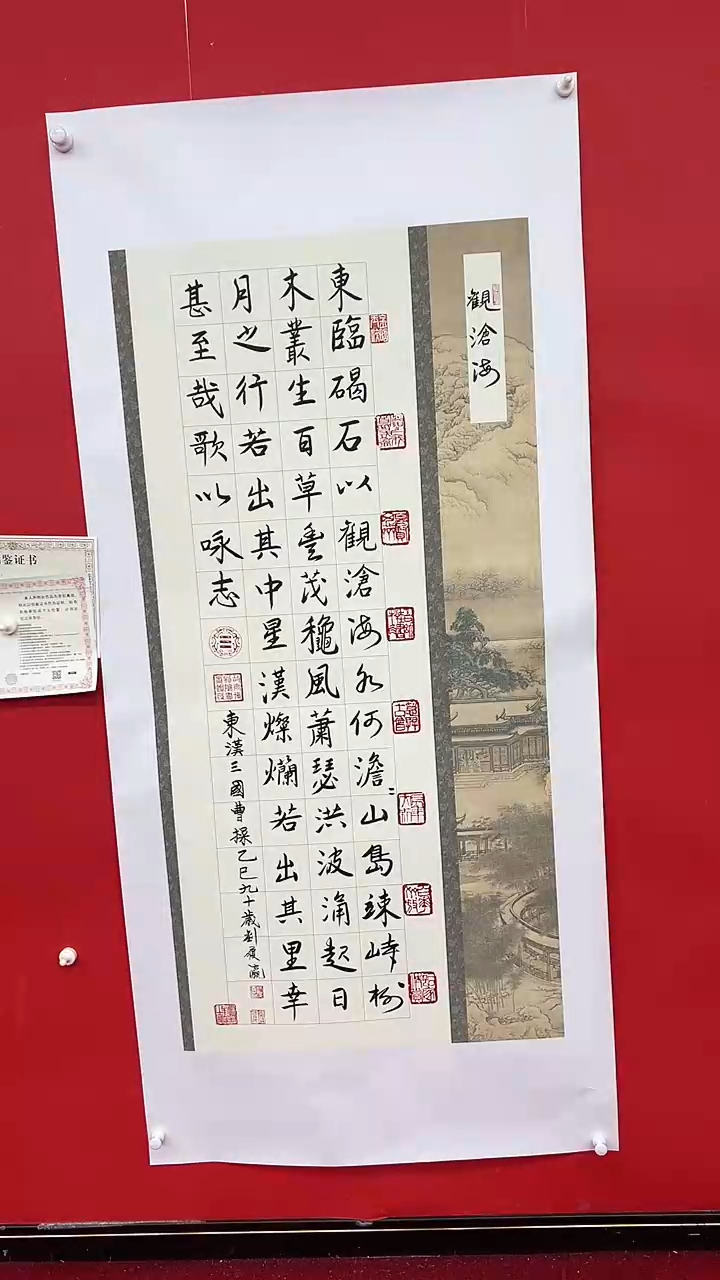 觀滄海
東臨碣石以觀滄海水何澹〻山島竦峙樹
木叢生百草豐茂龝風蕭瑟洪波涌起日
月之行若出其中星漢燦爛若出其里幸
甚至哉歌以咏志
東漢三國曹操乙巳九十歲劉
鉴证书